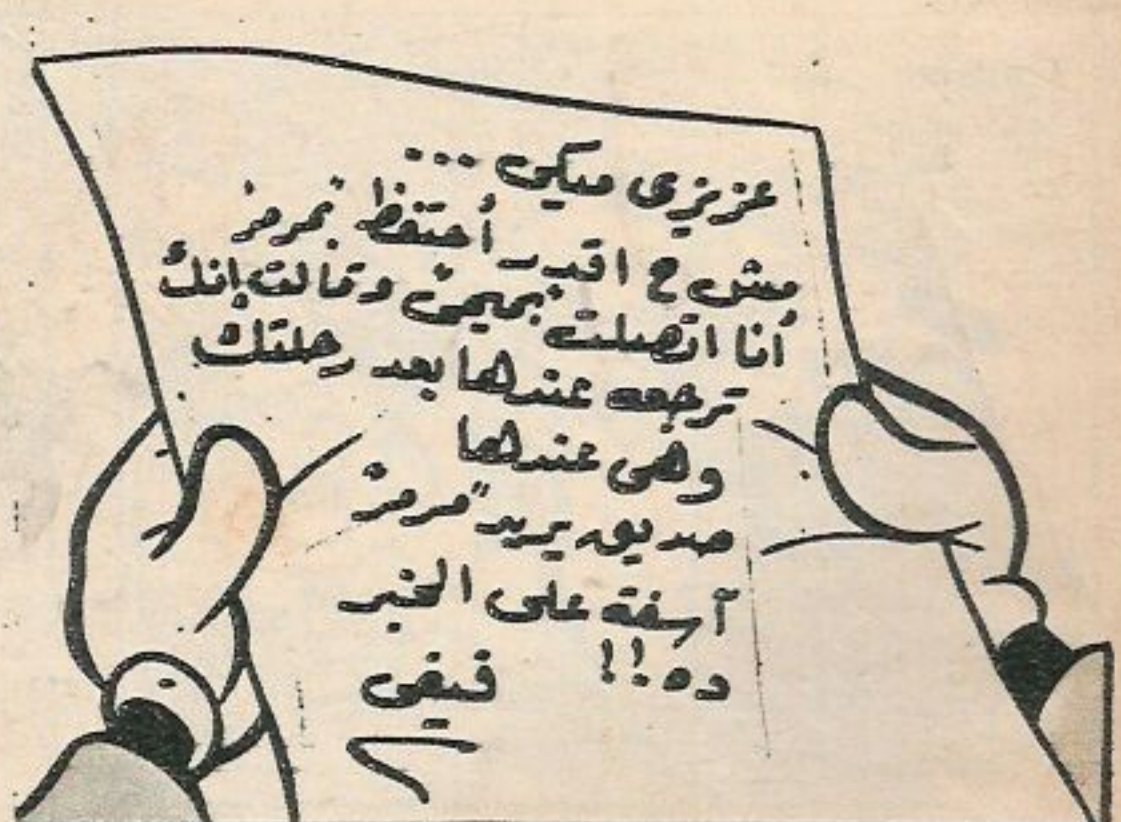 عزيزى ميكى ...
مش ح اقدر أحتفظ "بمرمز"
أنا اتصلت "بميمى" وقالت إنك
ترجعه عندها بعد رحلتك
وهى عندها
صديق يريد "مرمز"
آسفة على الخبر
ده!! فيفى